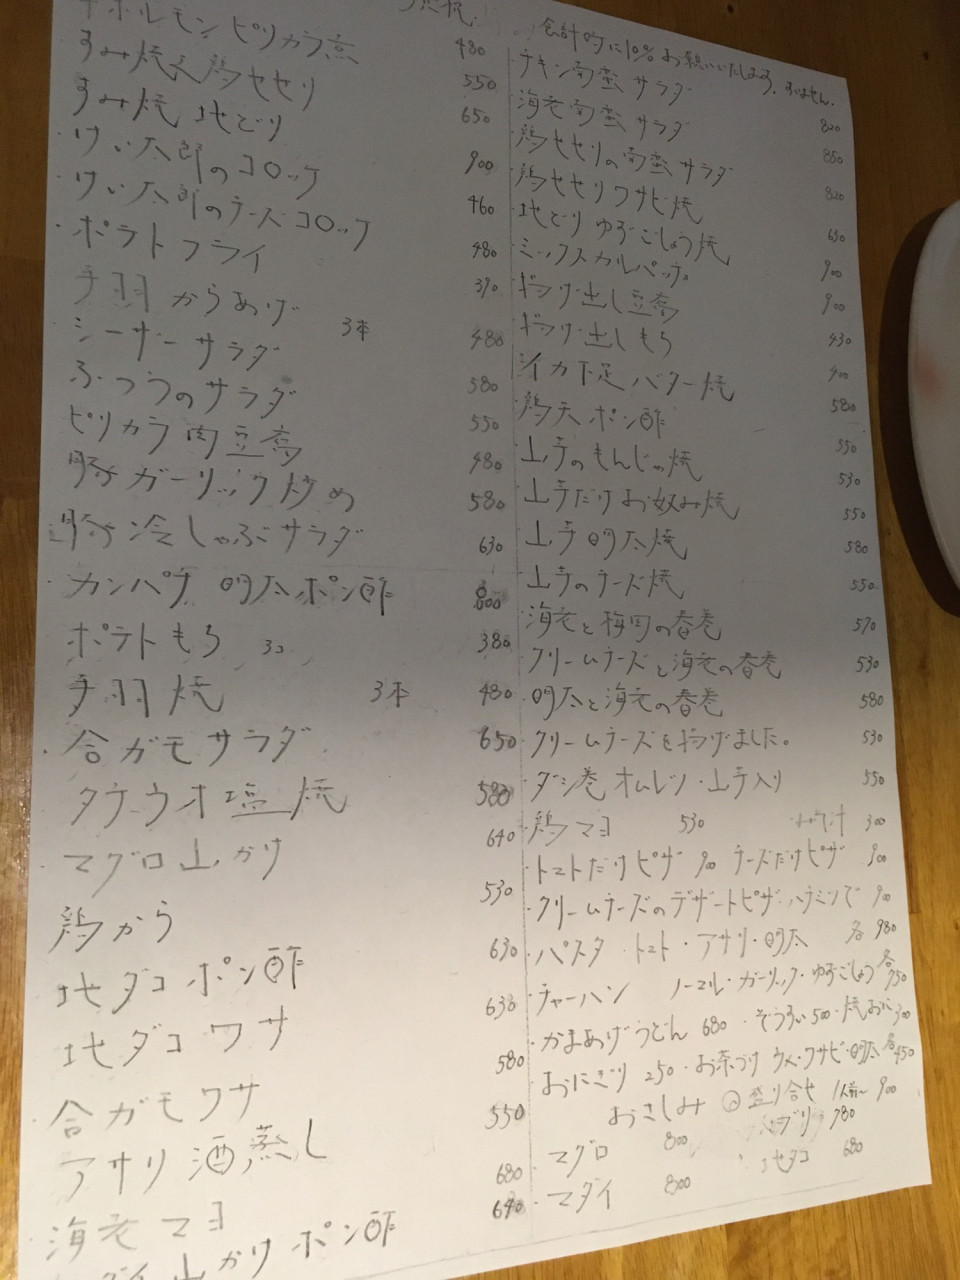 ホルモンピリカラ煮 480
すみ焼き鶏セセリ 550
すみ焼地どり 650
けい太郎のコロッケ 900
けい太郎のチーズコロッケ 460
・ポテトフライ 480
手羽からあげ 3本 390
シーザーサラダ 480
ふつうのサラダ 580
ピリカラ肉豆腐 550
豚ガーリック炒め 480
豚冷しゃぶサラダ 580
カンパチ明太ポン酢 630
ポテトもち 3コ 380
手羽焼 3本 480
・合ガモサラダ 650
タチウオ塩焼 580
マグロ山かけ 640
鶏から 530
地ダコポン酢 630
地ダコワサ 630
合ガモワサ 580
アサリ酒蒸し 550
海老マヨ 680
山かけポン酢 640
会計時に10%お願いいたします。すいません。
チキン南蛮サラダ 820
海老南蛮サラダ 850
鶏セセリの南蛮サラダ 820
鶏セセリワサビ焼 650
地どりゆずごしょう焼 900
ミックスカルパッチョ 900
揚げ出し豆腐 430
揚げ出しもち 400
イカ下足バター焼 580
鶏天ポン酢 550
山芋のもんじゃ焼 530
山芋だけお好み焼 550
山芋明太焼 580
山芋のチーズ焼 550
海老と梅肉の春巻 570
クリームチーズと海老の春巻 530
明太と海老の春巻 580
クリームチーズを揚げました。 530
ダシ巻オムレツ・山芋入り 550
・鶏マヨ 530 汁 300
・トマトだけピザ 900 チーズだけピザ 900
・クリームチーズのデザートピザ・ハチミツで 900
・パスタ トマト・アサリ・明太 各 980
・チャーハン ノーマル・ガーリック・ゆずごしょう 各750
・かまあげうどん 680 ・ぞうすい 500 ・焼おに 300
・おにぎり 250 ・お茶づけ ウメ・ワサビ・明太 各450
おさしみ 盛り合せ 1人前~ 900
・マグロ 800 ブリ 780
・マダイ 800 ・地ダコ 680